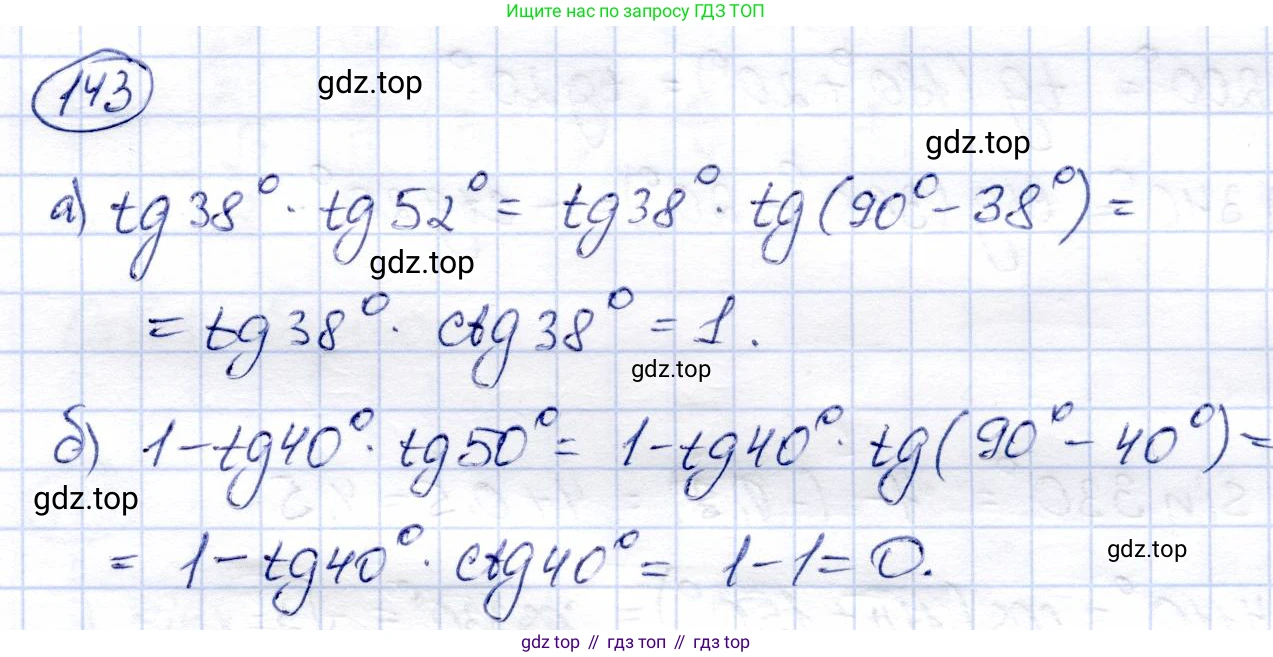 Ищите нас по запросу ГДЗ ТОП
143
gdz.top
gdz.top
а) tg 38° · tg 52° = tg 38° · tg (90° - 38°) =
gdz.top
= tg 38° · ctg 38° = 1.
gdz.top
б) 1 - tg 40° · tg 50° = 1 - tg 40° · tg (90° - 40°) =
gdz.top
= 1 - tg 40° · ctg 40° = 1 - 1 = 0.
gdz.top
gdz top // гдз топ // gdz top